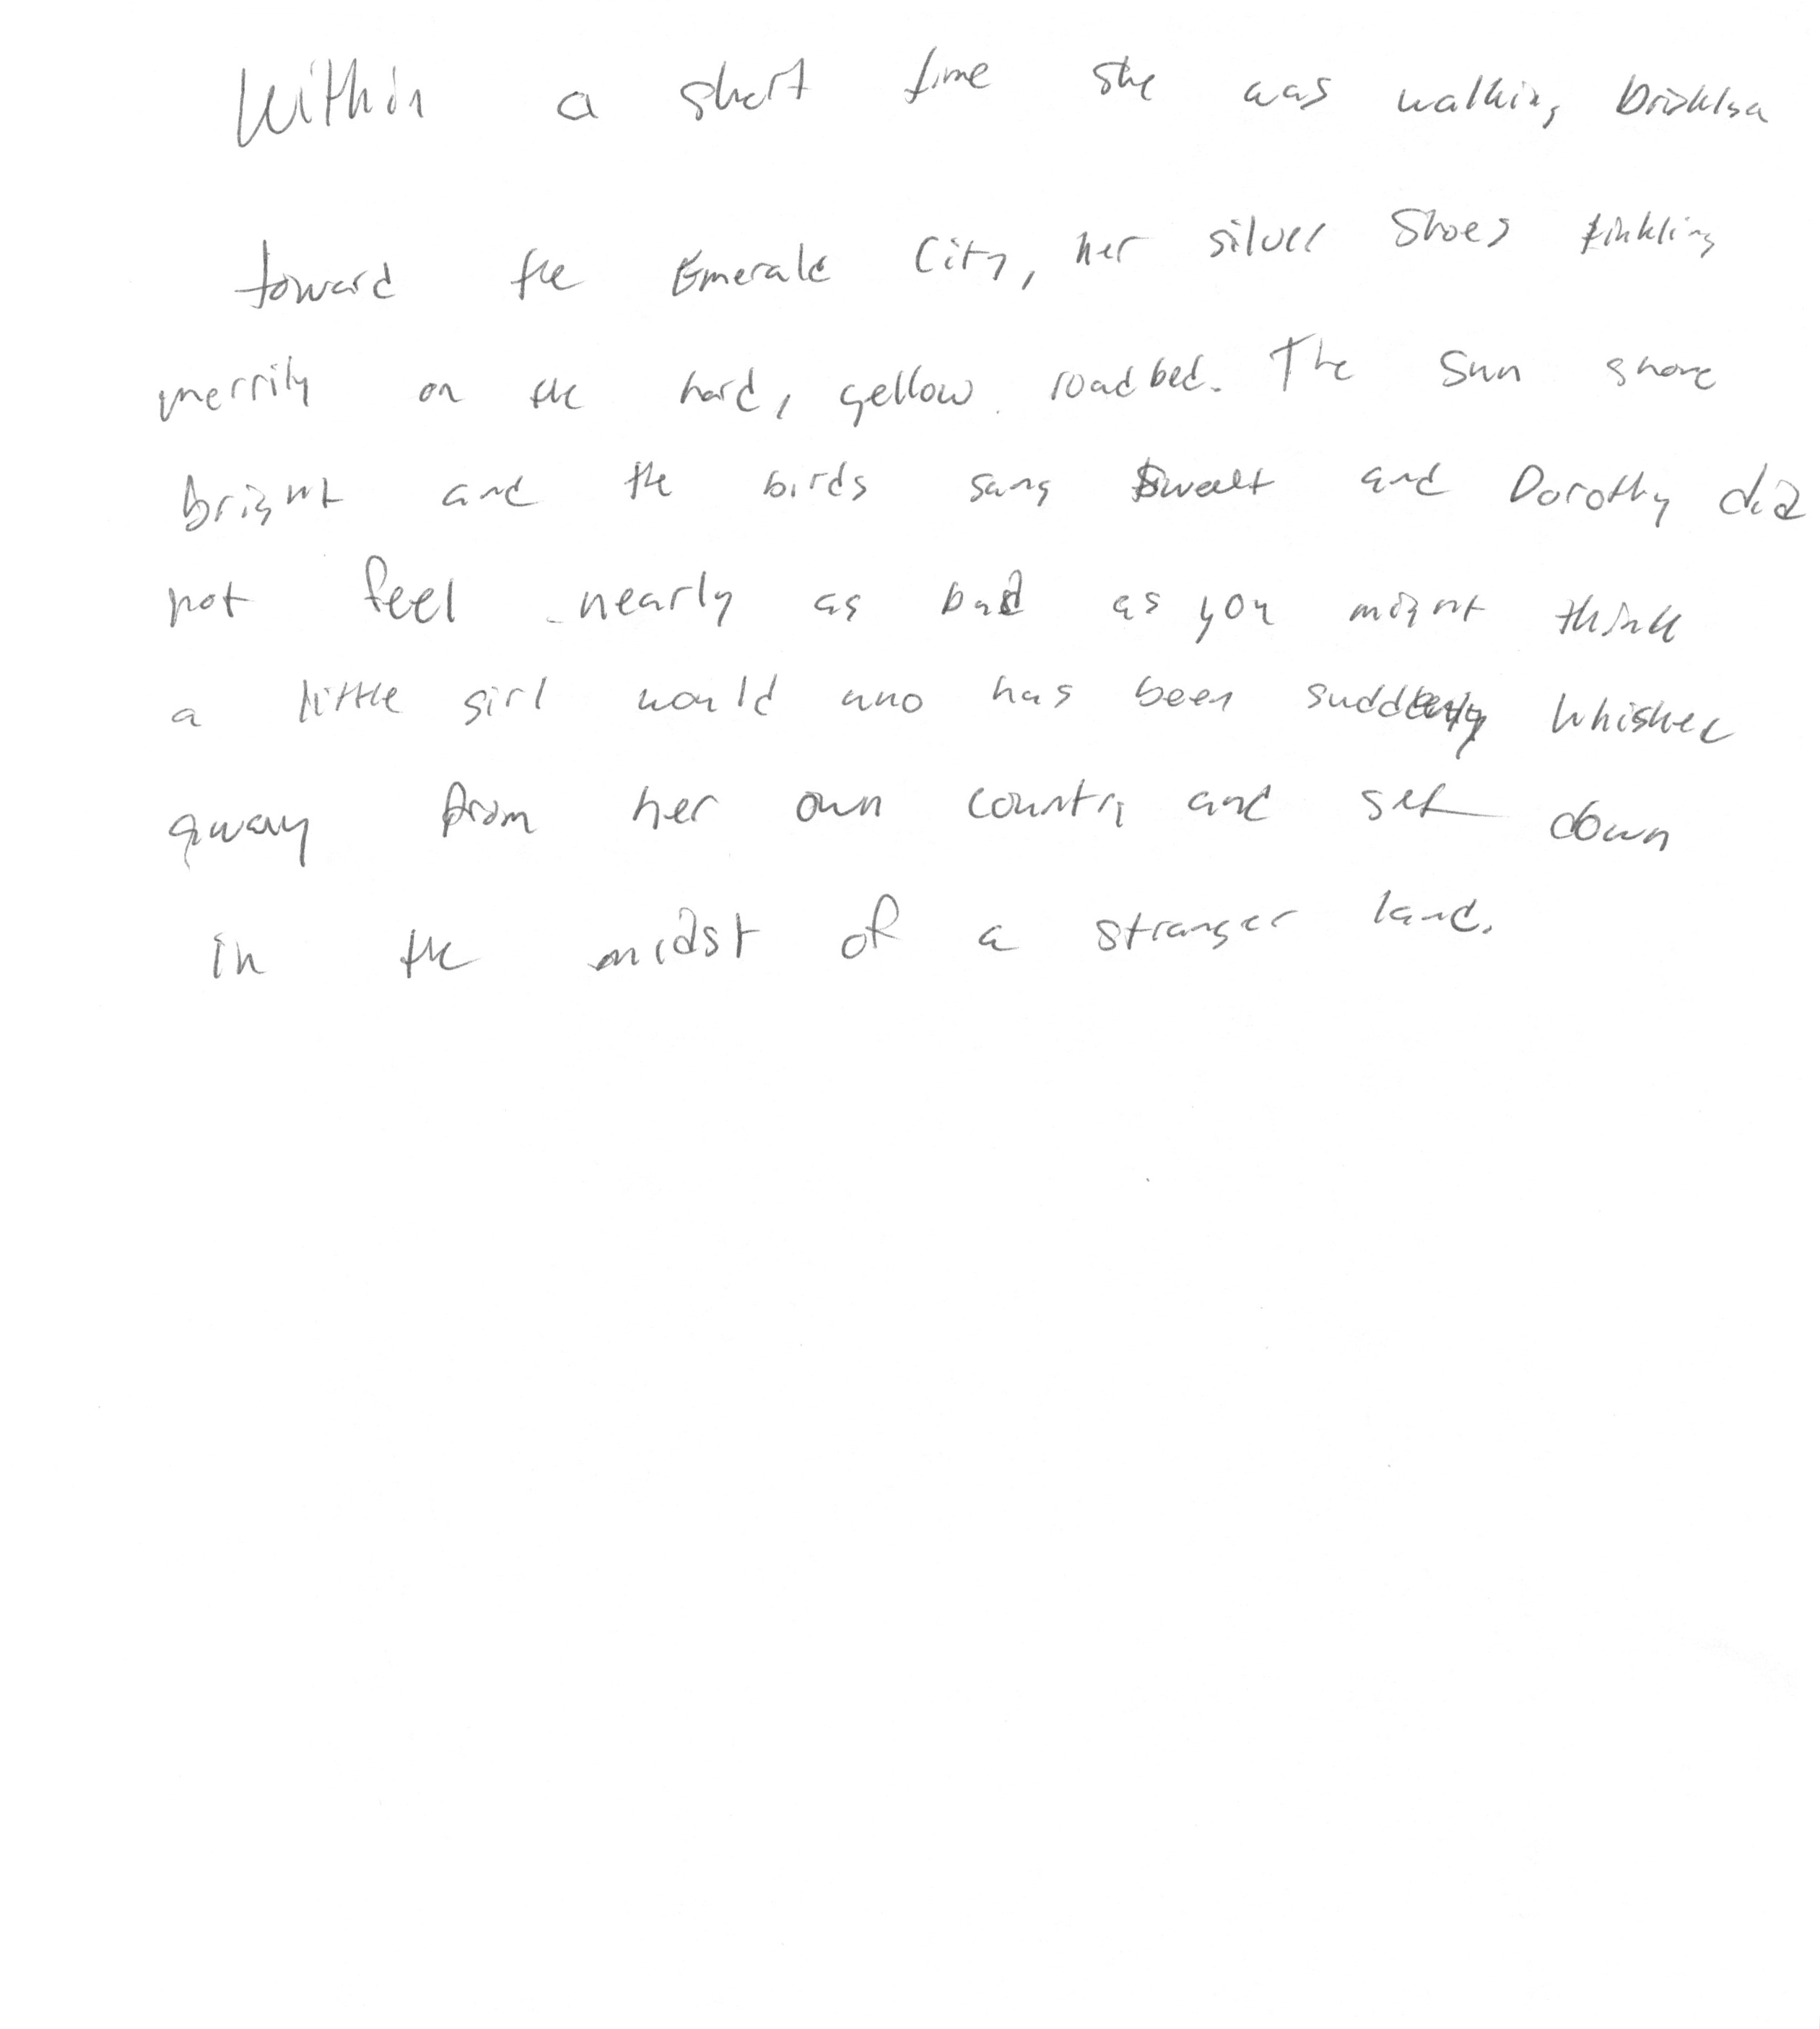 Within a short time she was walking briskly
toward the Emerald City, her silver Shoes tinkling
merrily on the hard, yellow roadbed. The sun shone
bright and the birds sang sweet and Dorothy did
not feel nearly as bad as you might think
a little girl would who has been suddenly whisked
away from her own country and set down
in the midst of a stranger land.